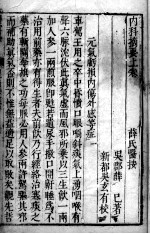 內科摘要上卷
薛氏醫按
吳郡薛 己著
新都吳玄有校
元氣虧損內傷外感等症
車駕王用之卒中昏憒口眼喎斜痰氣上湧咽喉有
聲六脈沉伏此真氣虛而風邪所乘以三生飲一兩
加人參一兩煎服即甦若遺尿手撒口開鼾睡為不
治用前藥亦有得生者夫前飲乃行經絡治寒痰之
藥有斬關奪旗之功每服必用人參兩許駕驅其邪
而補助真氣否則不惟無益適足以取敗矣觀先哲